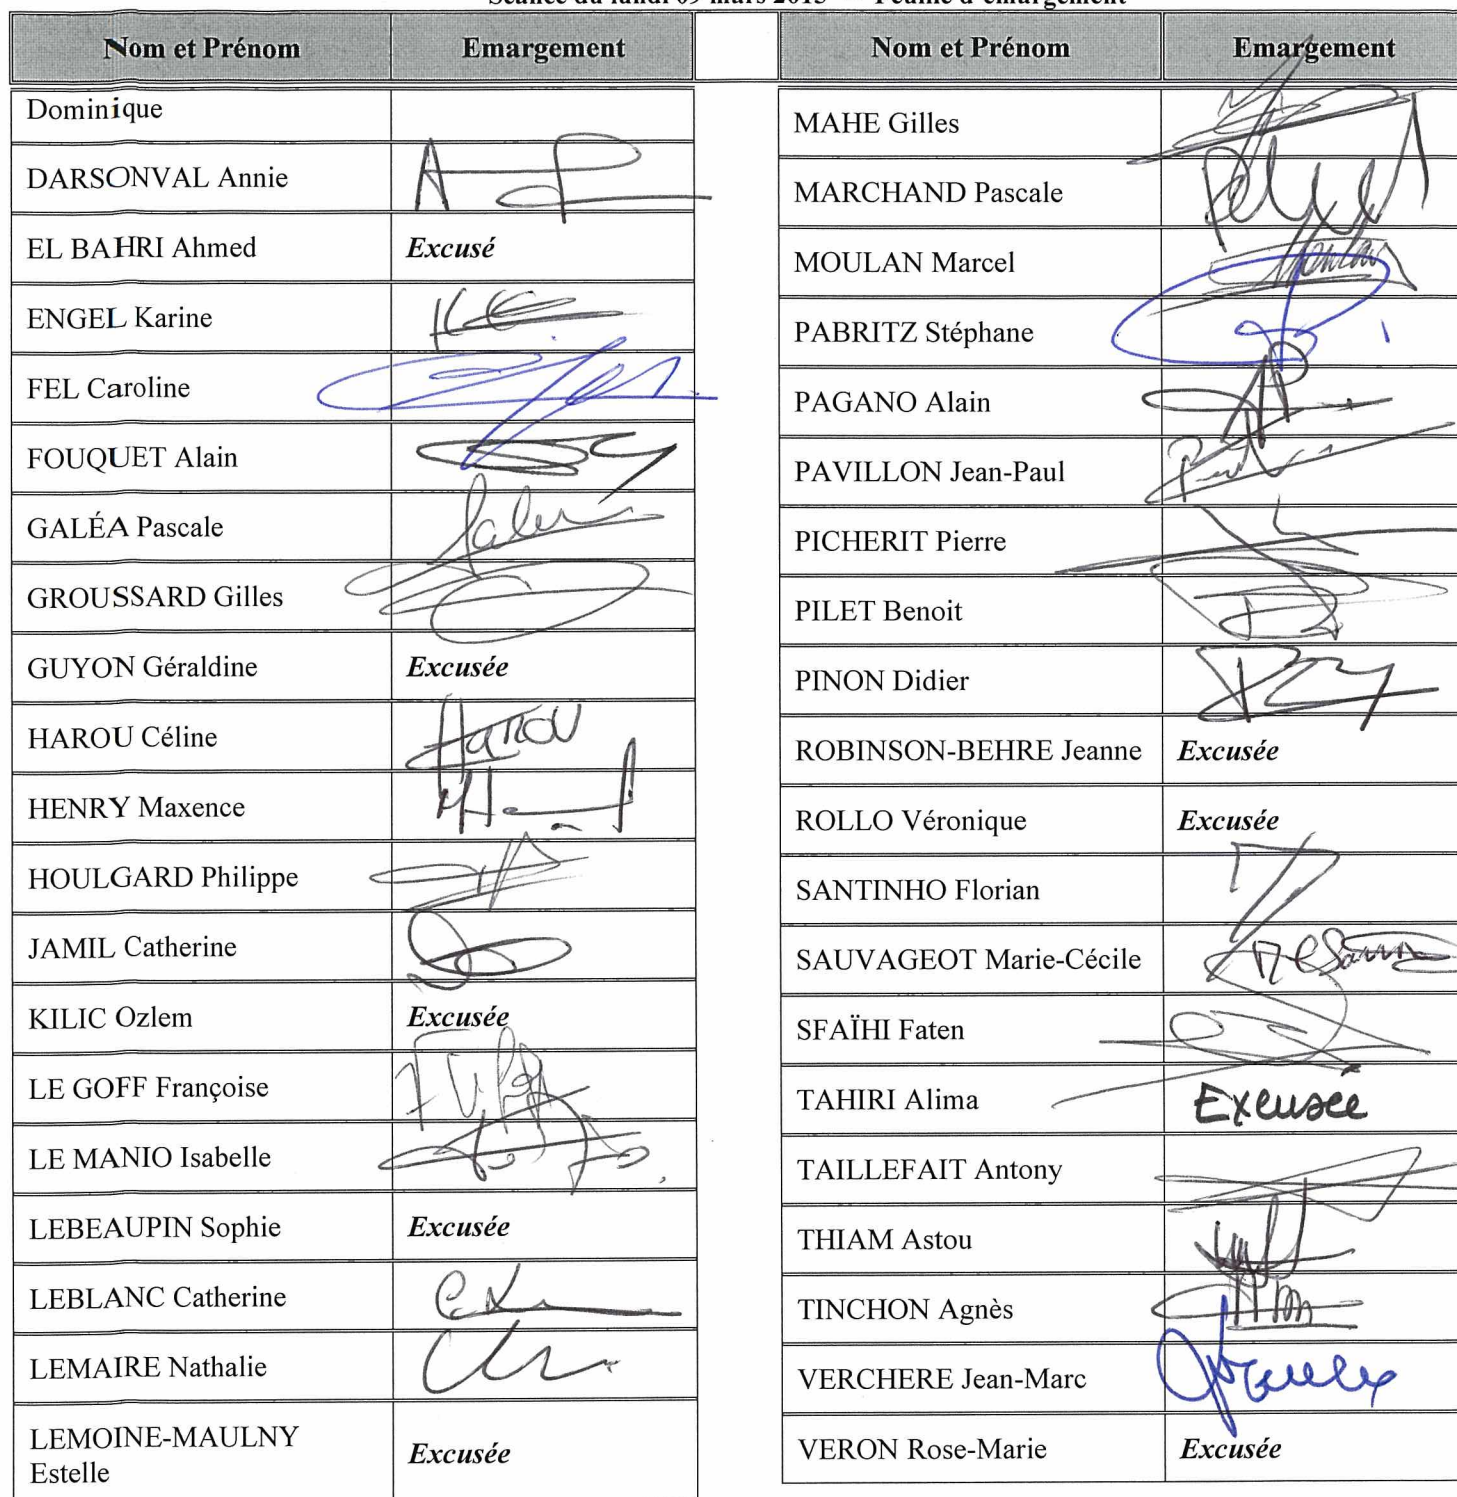 Séance du lundi 09 mars 2015 Feuille d'émargement
Nom et Prénom Emargement
Dominique
DARSONVAL Annie
EL BAHRI Ahmed Excusé
ENGEL Karine
FEL Caroline
FOUQUET Alain
GALÉA Pascale
GROUSSARD Gilles
GUYON Géraldine Excusée
HAROU Céline
HENRY Maxence
HOULGARD Philippe
JAMIL Catherine
KILIC Ozlem Excusée
LE GOFF Françoise
LE MANIO Isabelle
LEBEAUPIN Sophie Excusée
LEBLANC Catherine
LEMAIRE Nathalie
LEMOINE-MAULNY
Estelle Excusée
Nom et Prénom Emargement
MAHE Gilles
MARCHAND Pascale
MOULAN Marcel
PABRITZ Stéphane
PAGANO Alain
PAVILLON Jean-Paul
PICHERIT Pierre
PILET Benoit
PINON Didier
ROBINSON-BEHRE Jeanne Excusée
ROLLO Véronique Excusée
SANTINHO Florian
SAUVAGEOT Marie-Cécile
SFAÏHI Faten
TAHIRI Alima Excusée
TAILLEFAIT Antony
THIAM Astou
TINCHON Agnès
VERCHERE Jean-Marc
VERON Rose-Marie Excusée